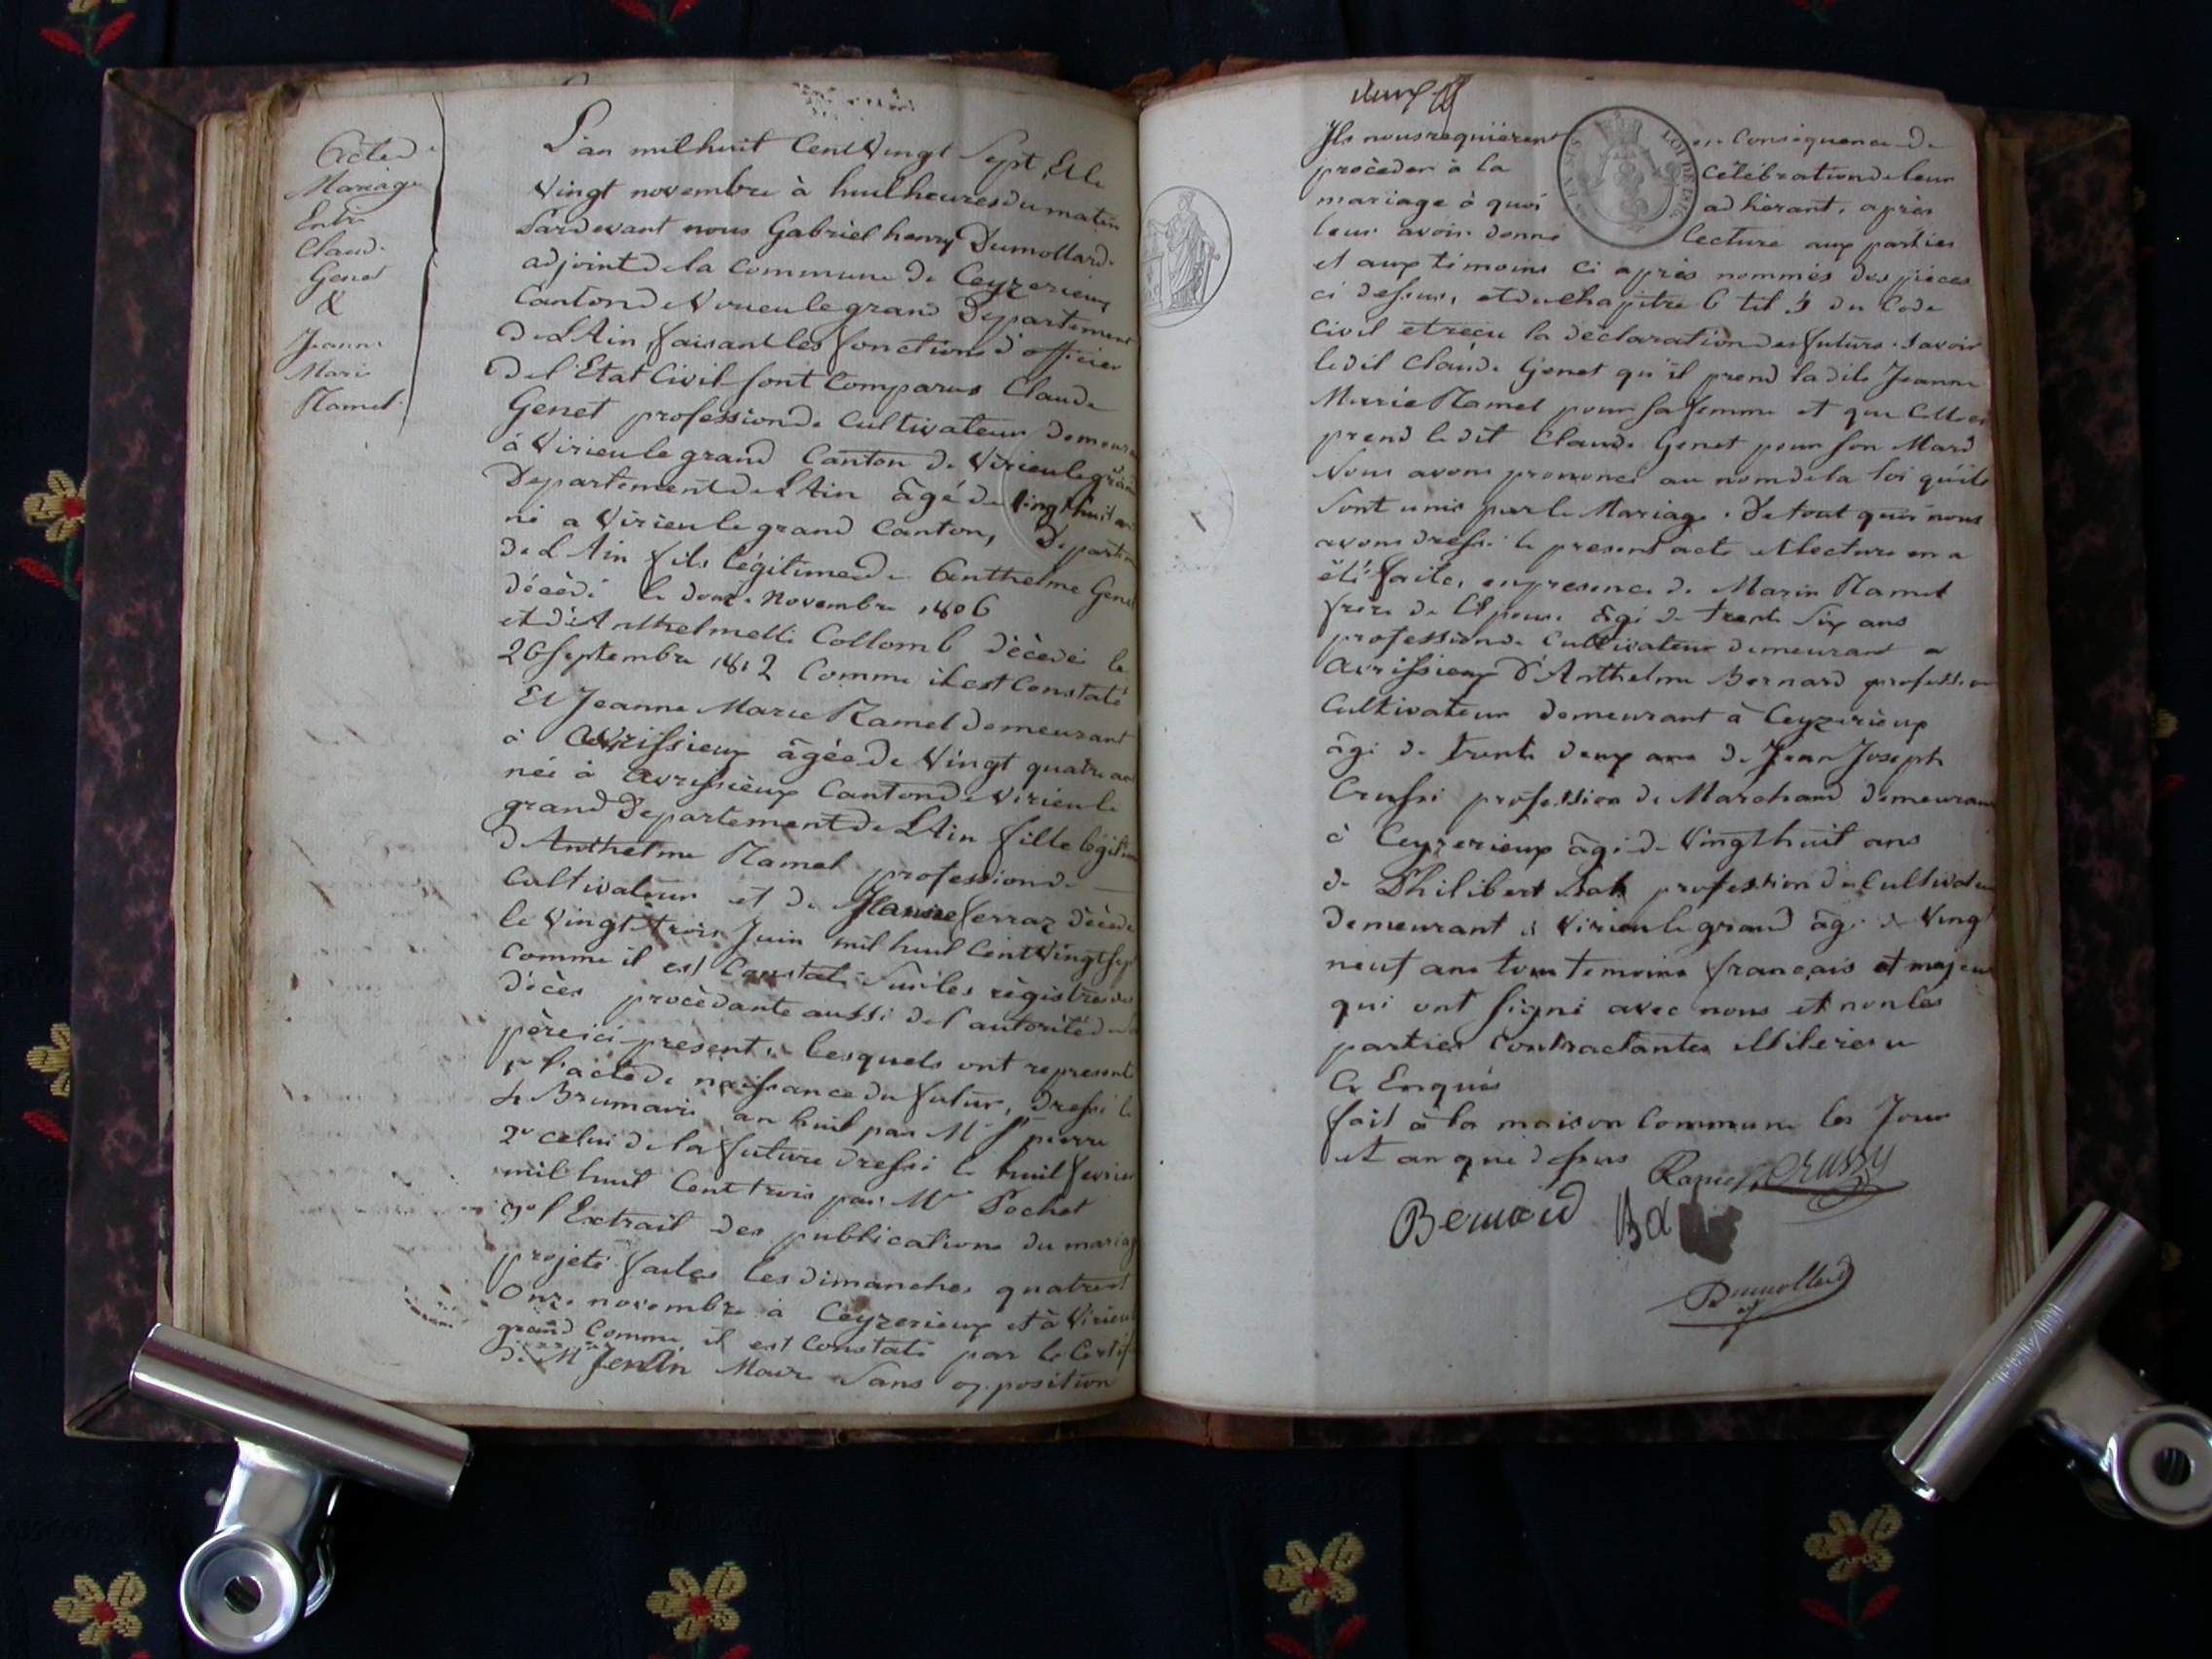 Acte de
Mariage
Entre
Claude
Genet
&
Jeanne
Marie
Ramel.
L'an mil huit Cent Vingt Sept, Et le
Vingt novembre à huit heures du matin
Pardevant nous Gabriel henry Dumollard
adjoint de la Commune de Ceyzerieux
Canton de Virieu le grand Departement
De L'Ain, faisant les fonctions d'officier
De l'Etat Civil sont Comparus Claude
Genet profession de Cultivateur Demeura
à Virieu le grand Canton de Virieu le gran
Departement de L'Ain âgé de Vingt huit an
né a Virieu le grand Canton, Departem
De L'Ain fils légitime de Anthelme Genet
décédé le douze Novembre 1806
et d'Anthelmette Collomb décédée le
26 septembre 1812 Comme il est Constaté
Et Jeanne Marie Ramel demeurant
à Avrissieux âgée de Vingt quatre ans
née à avrissieux Canton de Virieu le
grand Departement de L'Ain fille légitim
D'Anthelme Ramel profession de
Cultivateur et de Jeanne ferraz décédé
le Vingt trois Juin mil huit Cent Vingt sept
Comme il est Constaté Sur les régistres des
décès procèdante aussi de l'autorité de
père ici présent, lesquels ont représenté
1º l'acte de naissance du futur, dressé le
4 Brumaire an huit par Mr St pierre
2º celui de la future dressé le huit fevrier
mil huit Cent trois par Mr Pochet
3º l'Extrait des publications du mariag
projeté faites les dimanches quatre et
Onze novembre à Ceyzerieux et à Virieu
grand Comme il est Constaté par le Certif
de Mr Maire Sans opposition
deux
Ils nous requièrent en Conséquence de
procèder à la Célébration de leur
mariage à quoi adhérant, après
leur avoir donné lecture aux parties
et aux témoins ci après nommés des pièces
ci dessus, et du chapitre 6 tit 5 du Code
Civil et reçu la déclaration des futurs. Savoir
le dit Claude Genet qu'il prend la dite Jeanne
Marie Ramel pour sa femme et que Celle ci
prend le dit Claude Genet pour son Mari
Nous avons prononcé au nom de la loi qu'ils
Sont unis par le Mariage. De tout quoi nous
avons dressé le present acte et lecture en a
été faite, en presence de Marin Ramel
frère de L'Epouse âgé de trente Six ans
profession de Cultivateur demeurant a
Avrissieux D'Anthelme Bernard profession
Cultivateur demeurant à Ceyzerieux
âgé de trente deux ans de Jean Joseph
Crussi profession de Marchand demeurant
à Ceyzerieux âgé de Vingt huit ans
de Philibert profession de Cultivateu
demeurant à Virieu le grand âgé de Vingt
neuf ans tous temoins français et majeur
qui ont signé avec nous et non les
parties Contractantes
Ce Enquis
fait à la maison Commune les Jour
et an que dessus Ramel Crussy
Bernard
Dumollard
LOI DE 1816